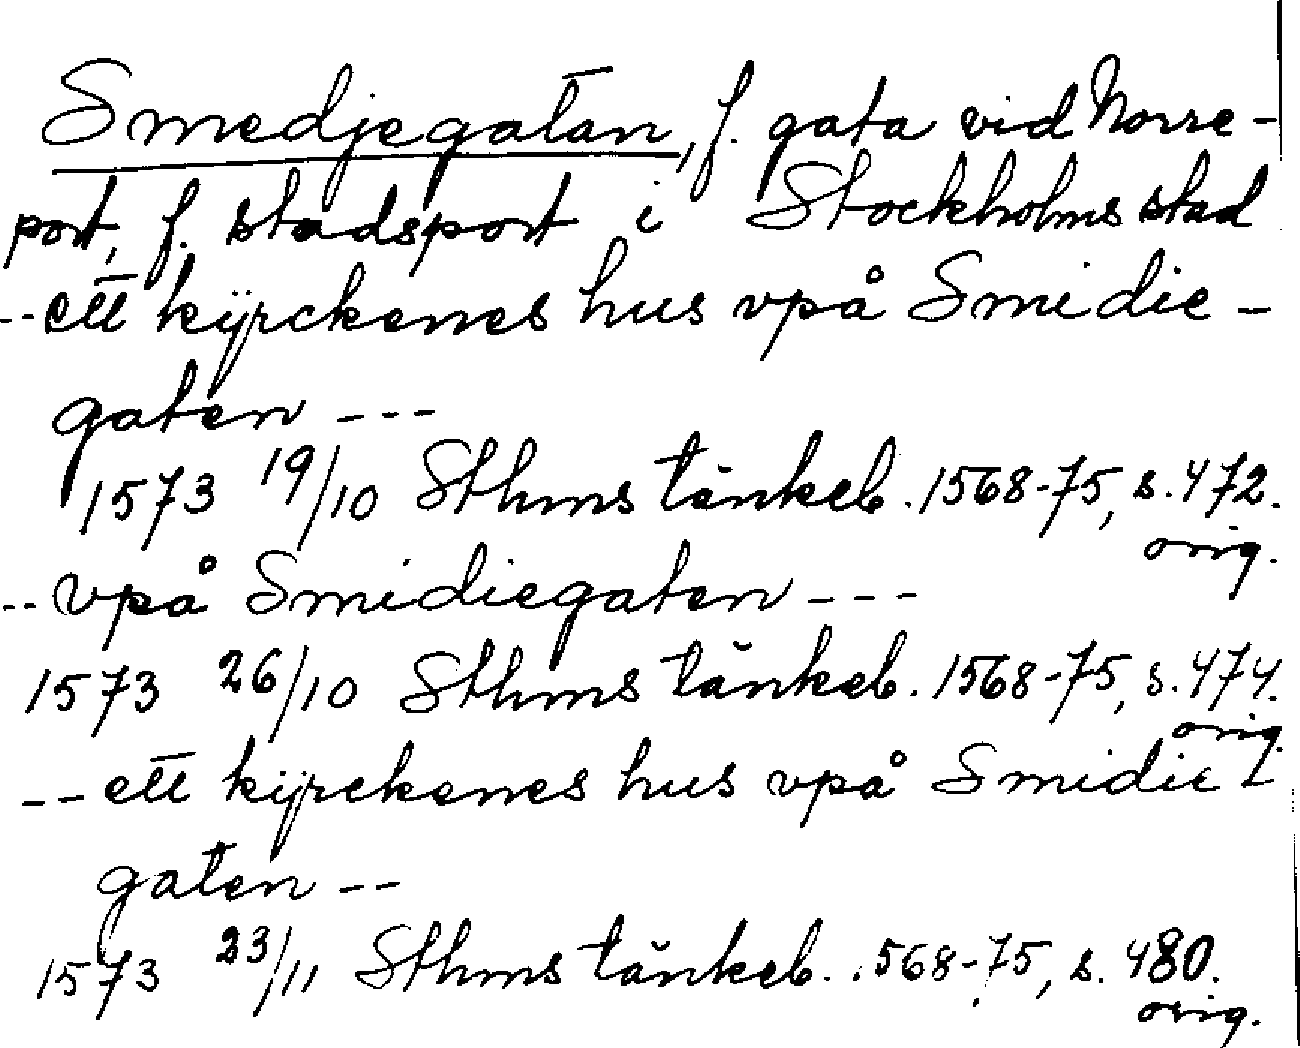 Smedjegatan, f. gata vid Norre-
port, f. stadsport i Stockholms stad
-- ett kÿrckenes hus vpå Smidie-
gaten ---
1573 19/10 Sthms tänkeb. 1568-75, s. 472.
orig.
-- vpå Smidiegaten ---
1573 26/10 Sthms tänkeb. 1568-75, s. 474.
orig.
-- ett kÿrckenes hus vpå Smidie-
gaten --
1573 23/11 Sthms tänkeb. .568-75, s. 480.
orig.